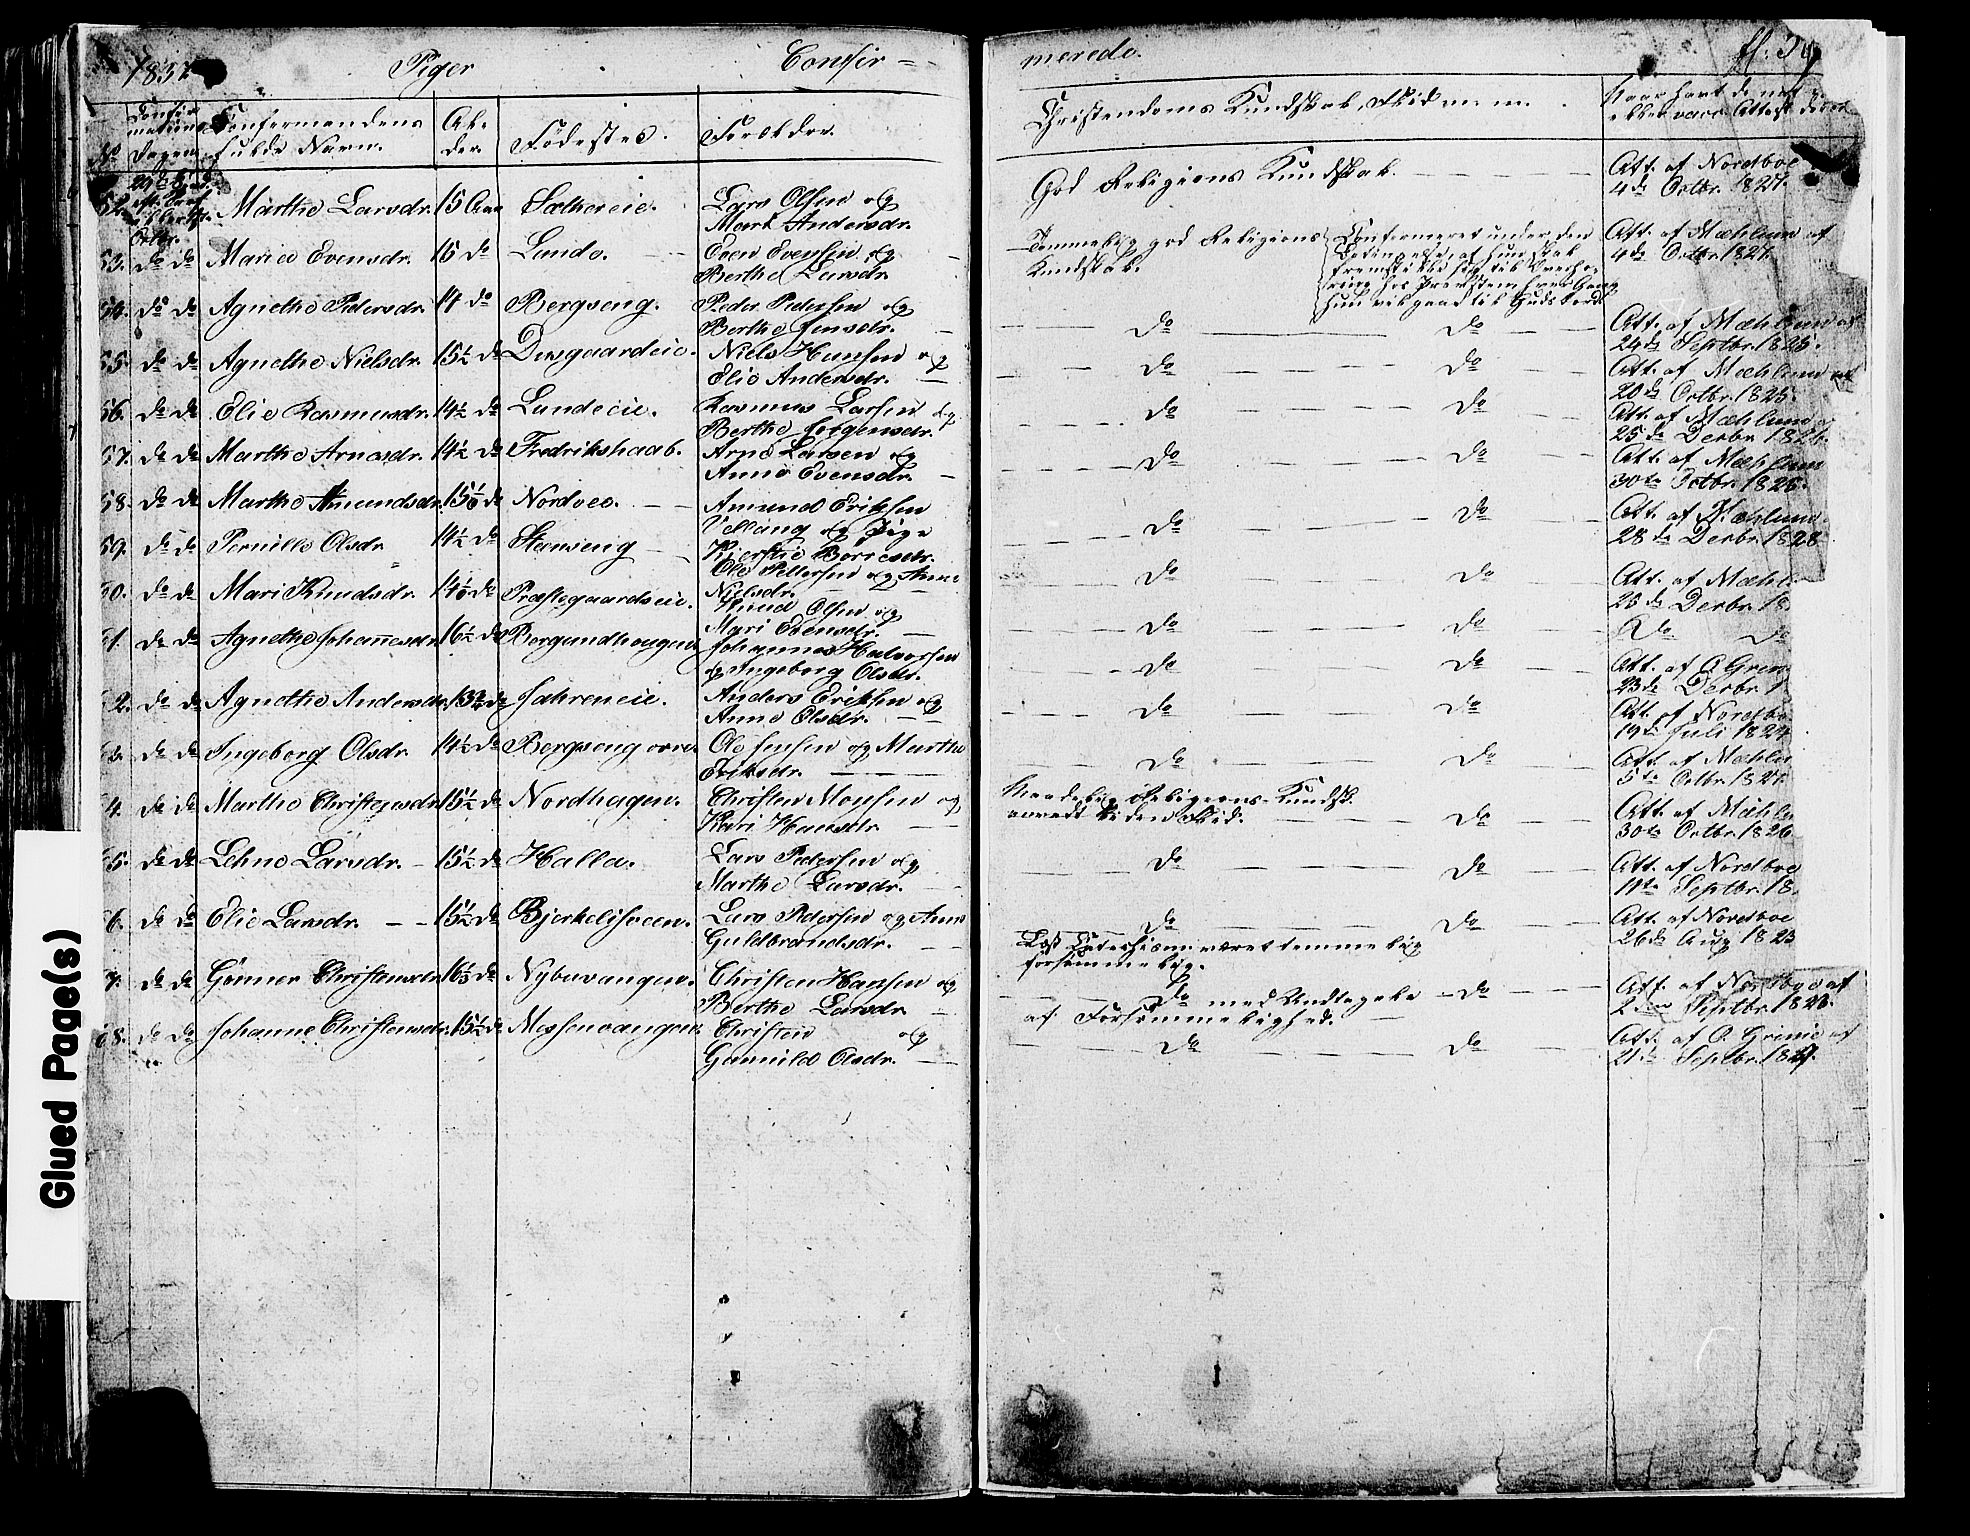 1837
Piger
Confir=
merede.
fl: 39
No
Confirmations Dagen
Confirmandens fulde Navn.
Alder
Fødested.
Forældre.
Christendoms Kundskab, Flid m. m.
Naar havt de nat. eller vacc. Attest derom
52. Marthe Larsdr. 15 Aar Sæthereie. Lars Olsen og
Mari Andersdr.
God Religions Kundskab.
Att. af Nordboe
4de Octbr. 1827.
53. do do Marie Evensdr. 15 do Lunde. Even Evensen og
Berthe Larsdr
Temmelig god Religions Kundskab.
Confirmeret under den
Betingelse, at hun skal
fremstille sig til Overhøring hos Præsten hver Gang
hun vil gaae til Guds Bord.
Att. af Mæhlum af
4de Octbr 1827.
54. do do Agnethe Pedersdr. 14 do Bergseng. Peder Pedersen og
Berthe Jensdr.
do do
Att. af Mæhlum af
24de Septbr. 1825.
55. do do Agnethe Nielsdr. 15½ do Diesgaardeie. Niels Hansen og
Elie Andersdr.
do do
Att. af Mæhlum af
20de Octbr. 1825.
56. do do Elie Rasmusdr. 14½ do Lundeeie. Rasmus Larsen og
Berthe Jørgensdr.
do do
Att. af Mæhlum
25de Decbr 1826.
57. do do Marthe Arnesdr. 14½ do Fredrikshaab. Arne Larsen og
Anne Evensdr.
do do
Att. af Mæhlum
30te Octbr. 1826.
58. do do Marthe Amundsdr. do Nordvee. Amund Eriksen
Vellang og Pige
Kjerstie Børresdr.
do do
Att. af Mæhlum
28de Decbr 1828
59. do do Pernille Olsdr 14½ do Stenseng Ole Pettersen og Anne
Nielsdr.
do do
Att. af Mæhl
23de Decbr. 18
60. do do Mari Knudsdr. do Præstegaardseie. Knud Olsen og
Mari Evensdr.
do do
do do
61. do do Agnethe Johannesdr. 16½ do Bergundhougen Johannes Halvorsen
og Ingeborg Olsdr.
do do
Att. af O Grim
23de Decbr 1
62. do do Agnethe Andersdr. do Jahreneie. Anders Eriksen og
Anne Olsdr.
do do
Att. af Nordbo
19de Juli 1824
63. do do Ingeborg Olsdr. 14½ do Bergseng øvre. Ole Jensen og Marthe
Eriksdr.
do do
Att. af Mæhlu
5te Octbr. 182
64. do do Marthe Christensdr. 15½ do Nordhagen. Christen Monsen og
Kari Hansdr.
Maadelig Religions-Kundsk.
anvendt liden Flid. do
Att. af Mæhlu
30te Octbr. 1826
65. do do Lehne Larsdr. 15½ do Halla. Lars Pedersen og
Marthe Larsdr.
do do
Att. af Nordboe
11te Septbr. 18
66. do do Elie Larsdr. 15½ do Bjerkelisveen. Lars Pedersen og Anne
Guldbrandsdr.
do do
Att. af Nordboe
26de Aug 1823
67. do do Gunner Christensdr. do Nybuvangen. Christen Hansen og
Berthe Larsdr.
Læst Catechismus været temmelig
forsømmelig.
do
Att. af Nordboe af
Septbr. 1828.
68. do do Johanne Christensdr. 15½ do Messenvangen Christen og
Gunnild Olsdr.
do med Undtagelse
af Forsømmelighed.
do do
Att. af O. Grimie af
21de Septbr. 1827.
Glued Page(s)